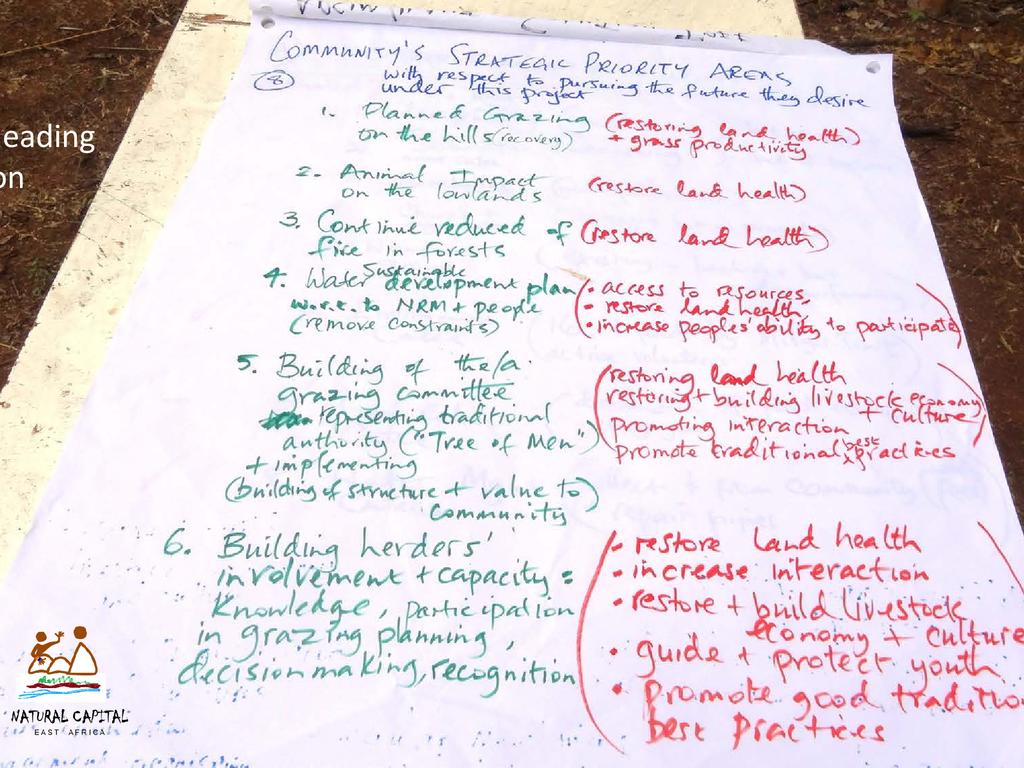 eading
on
COMMUNITY'S STRATEGIC PRIORITY AREAS
8 with respect to pursuing the future they desire
under this project
1. Planned Grazing (restoring land health)
on the hills (recovery) + grass productivity
2. Animal Impact (restore land health)
on the lowlands
3. Continue reduced of (restore land health)
fire in forests
4. Water Sustainable development plan
w.r.t. to NRM + people
(remove constraints)
(• access to resources,
• restore land health
• increase peoples' ability to participate)
5. Building of the/a
grazing committee
representing traditional
authority ("Tree of Men")
+ implementing
(building of structure + value to
community)
(restoring land health
restoring + building livestock economy
+ culture
promoting interaction
promote traditional best practices)
6. Building herders'
involvement + capacity:
Knowledge, participation
in grazing planning,
decision making, recognition
(• restore land health
• increase interaction
• restore + build livestock
economy + culture
• guide + protect youth
• promote good traditio
best practices
NATURAL CAPITAL
EAST AFRICA